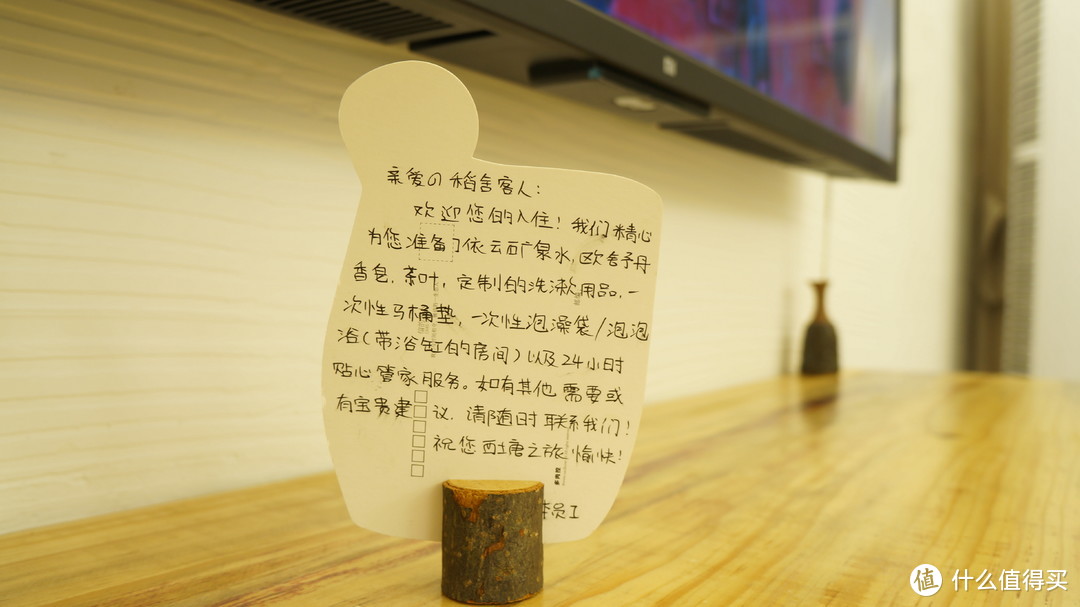 亲爱の稻舍客人:
欢迎您的入住!我们精心
为您准备了依云矿泉水,欧舒丹
香皂、茶叶,定制的洗漱用品,一
次性马桶垫,一次性泡澡袋/泡泡
浴(带浴缸的房间)以及24小时
贴心管家服务。如有其他需要或
有宝贵建议,请随时联系我们!
祝您西塘之旅愉快!
体员工
值 什么值得买